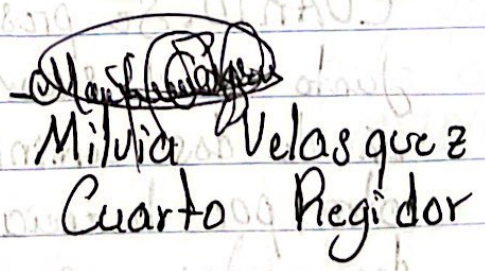 Milvia Velasquez
Cuarto Regidor